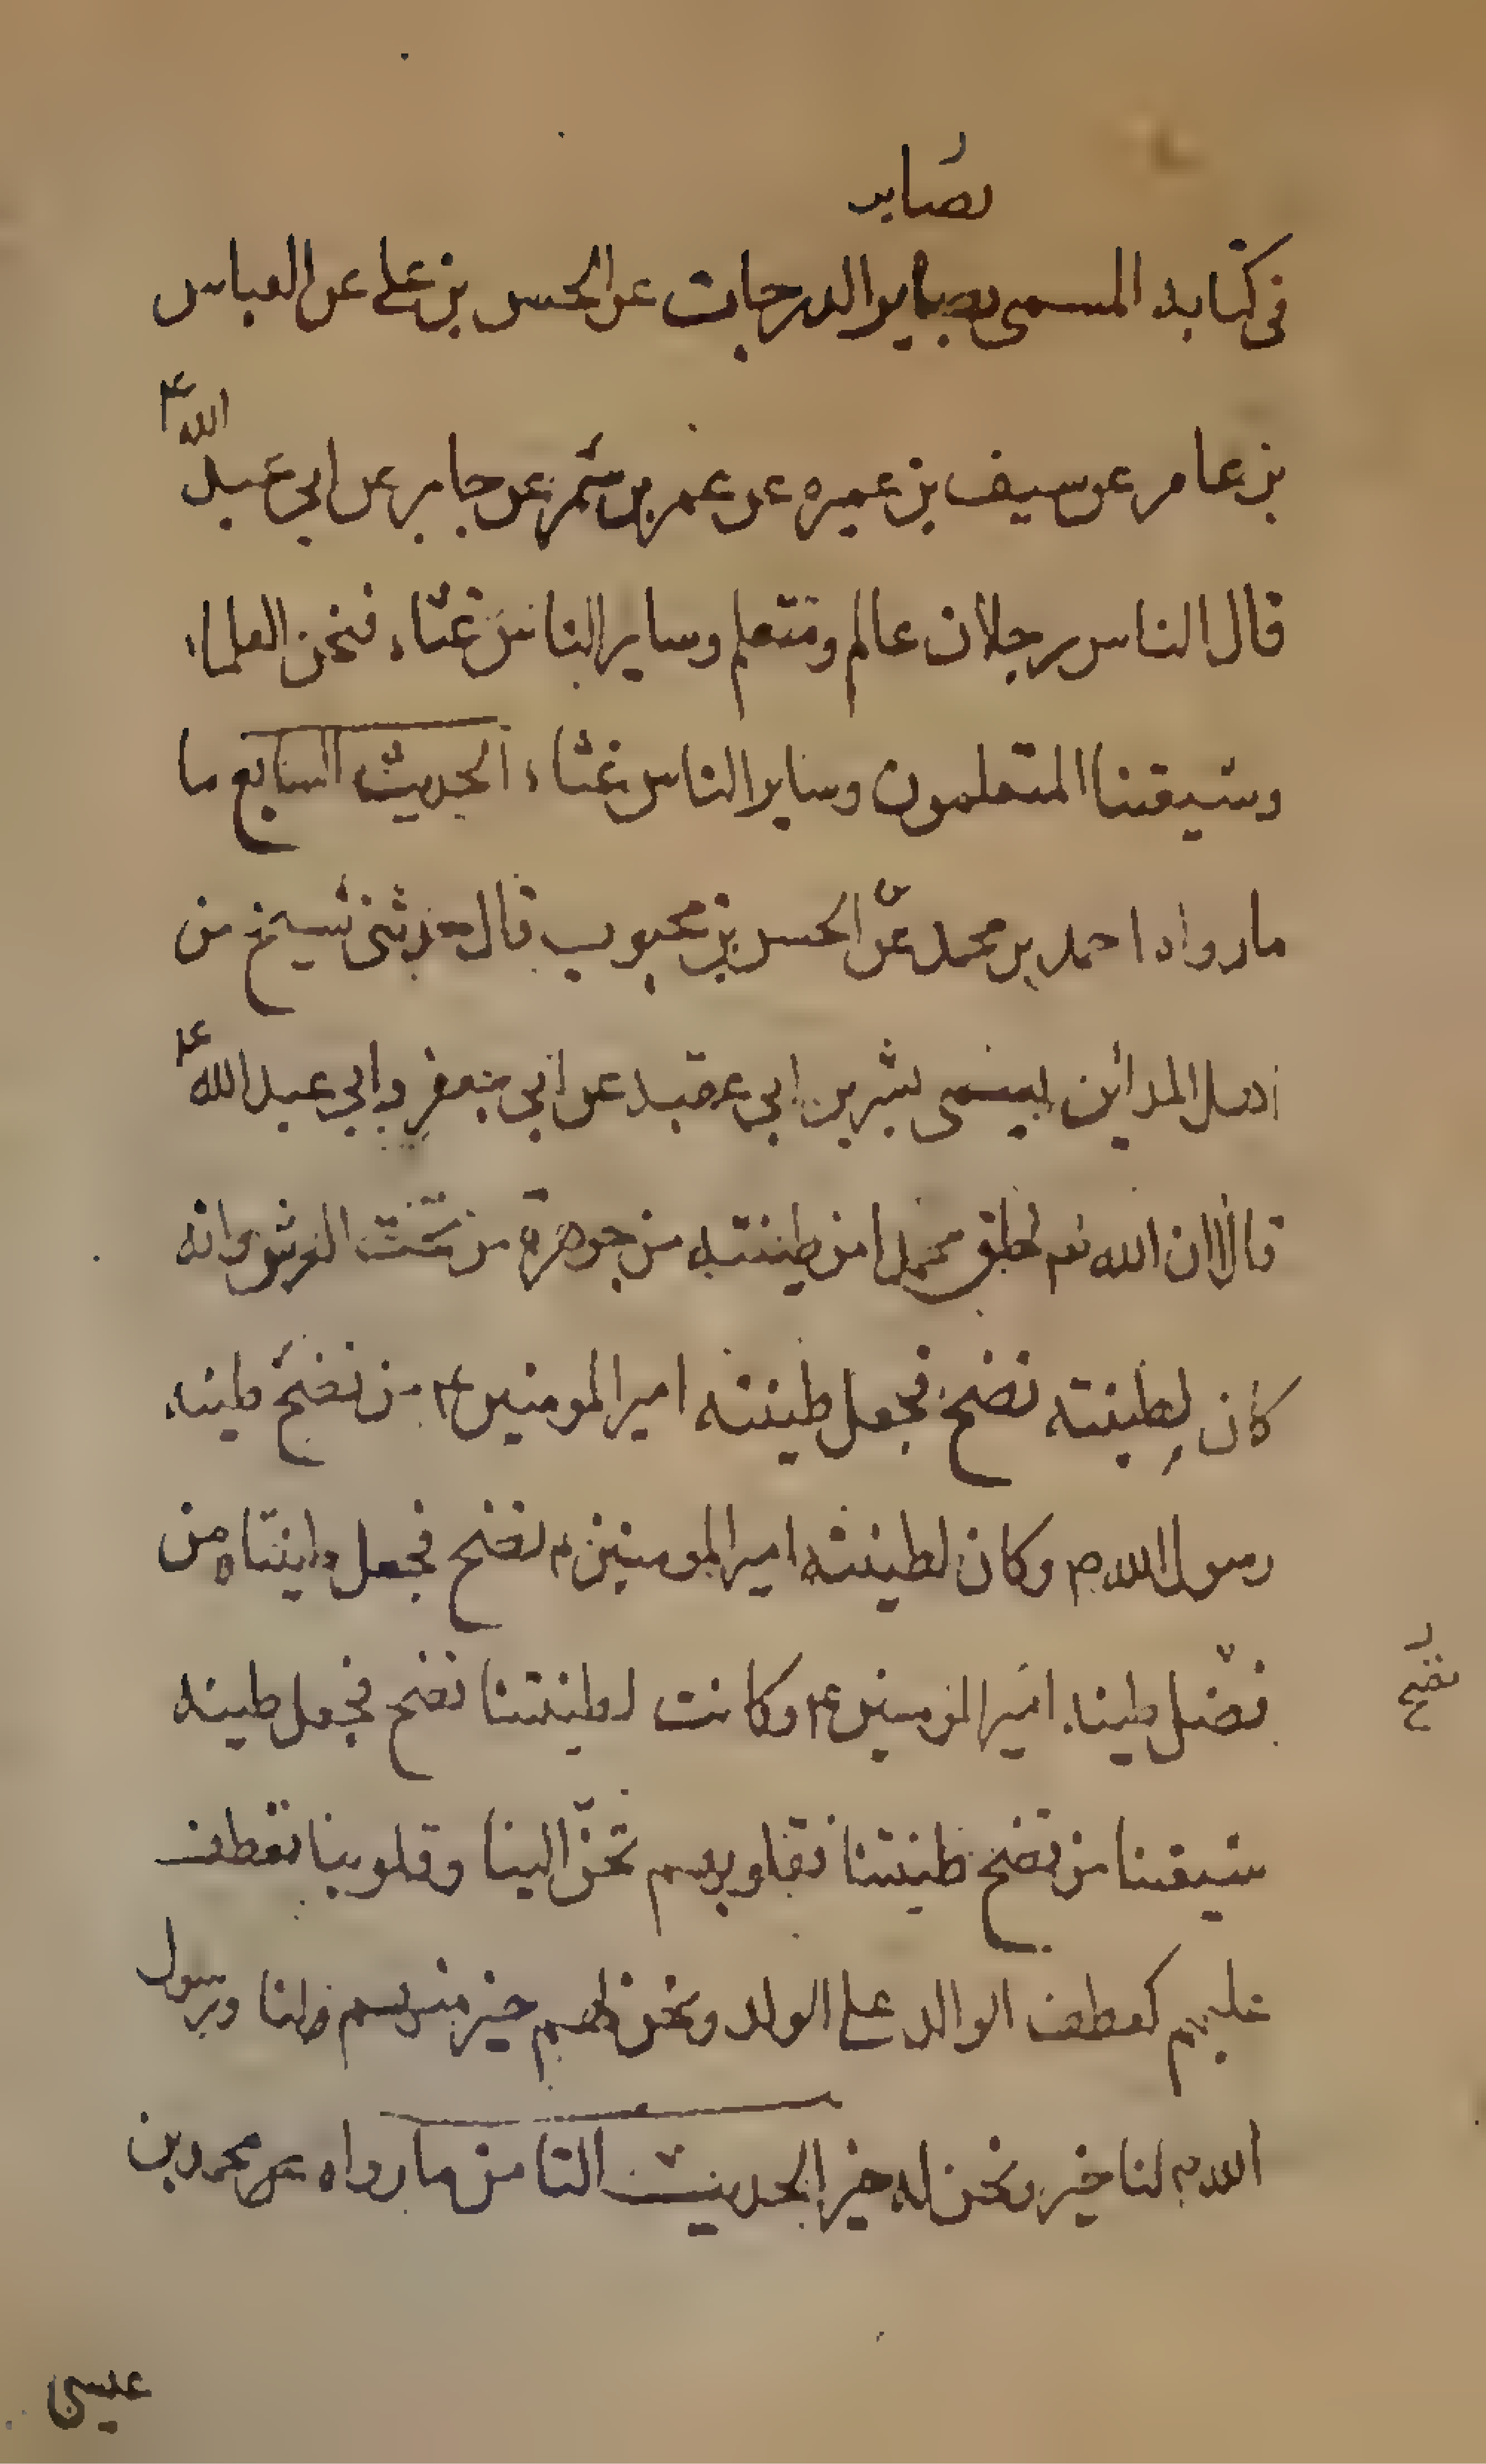 بصاير
فى كتابه المسمى بصاير الدرجات عن الحسن بن على عن العباس
بن عامر عن سيف بن عميره عن عمر بن شمر عن جابر عن ابى عبد الله ع
قال الناس رجلان عالم ومتعلم وساير الناس غثاء فنحن العلماء
وشيعتنا المتعلمون وساير الناس غثاء الحديث السابع ما
ما رواه احمد بن محمد عن الحسن بن محبوب قال حدثنى شيخ من
اهل المدائن يسمى بشر بن ابى عقبه عن ابى جعفر وابى عبد الله ع
قالا ان الله تعم خلق محمدا من طينته من جوهرة من تحت العرش وانه
كان لطينته نضح فجعل طينته امير المومنين ع من نضح طينه
رسول الله ص وكان لطينته امير المومنين ع نضح فجعل طينتاه من
فضل طينه امير المومنين ع وكانت لطينتنا نضح فجعل طينه
نضح
شيعتنا من نضح طينتنا فقلوبهم تحن الينا وقلوبنا تعطف
عليهم كعطف الوالد على الولد ونحن لهم خير منهم لنا ورسول
الله ص لنا خير ونحن له خير الحديث الثامن ما رواه عن محمد بن
عيسى